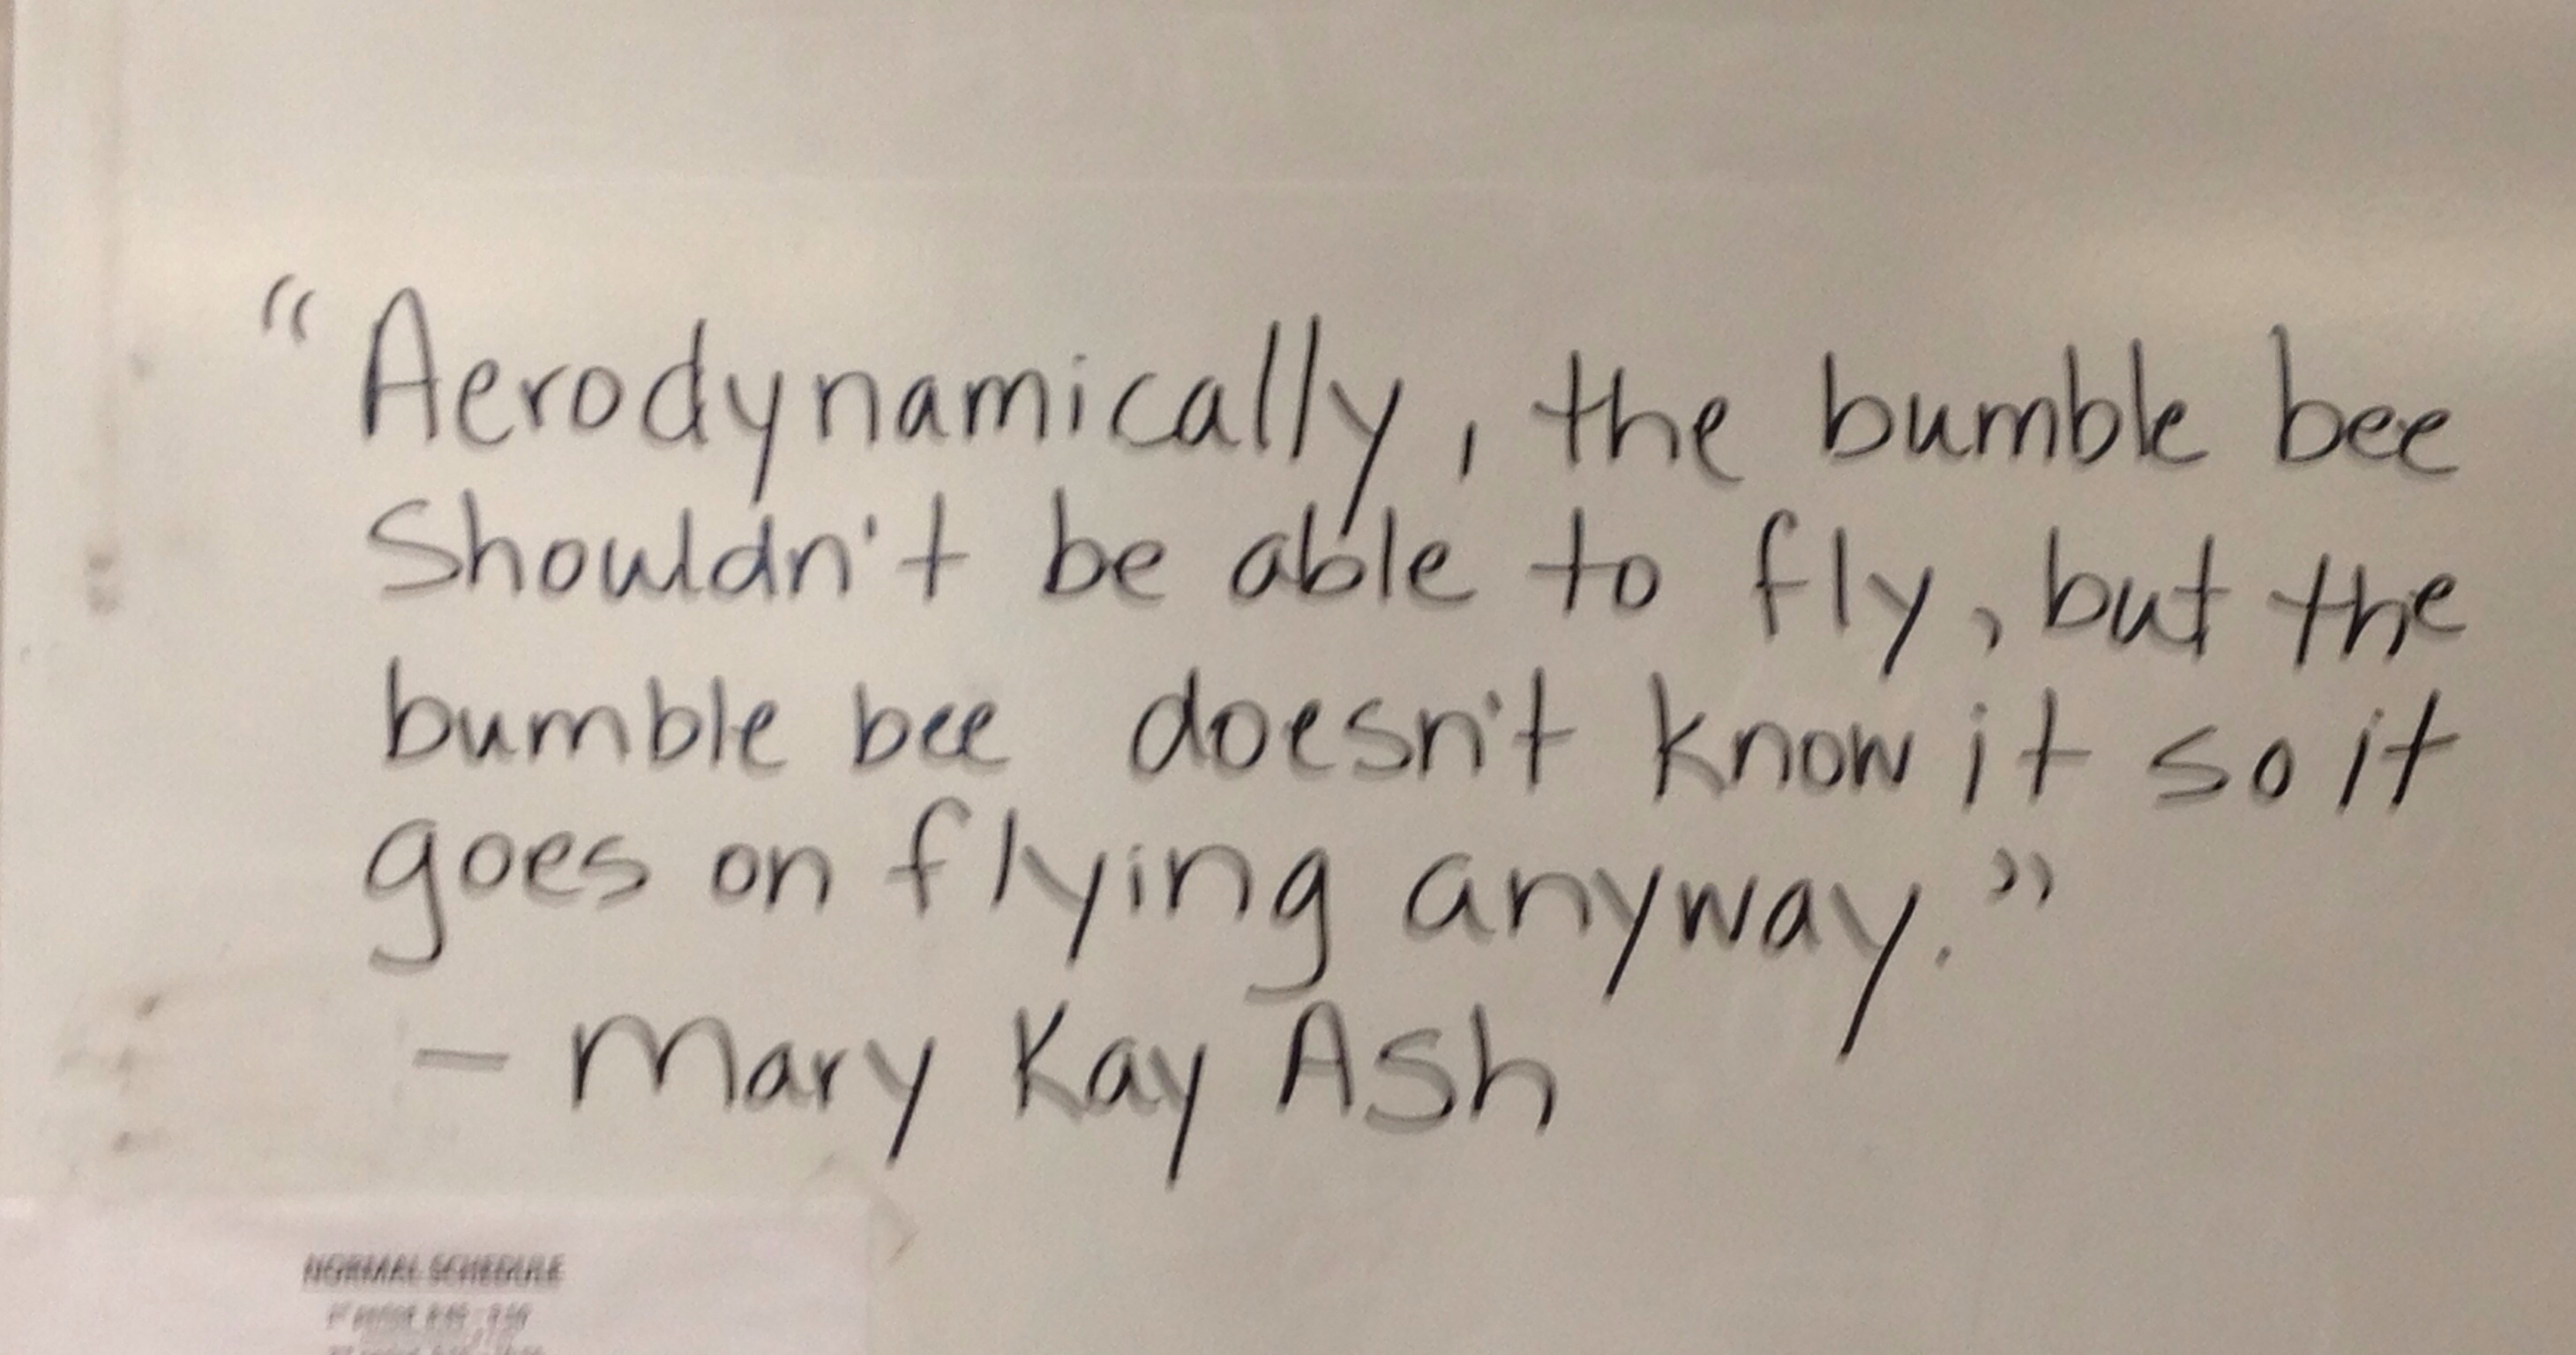 “Aerodynamically, the bumble bee
Shouldn't be able to fly, but the
bumble bee doesn't know it so it
goes on flying anyway.”
— Mary Kay Ash
NORMAL SCHEDULE